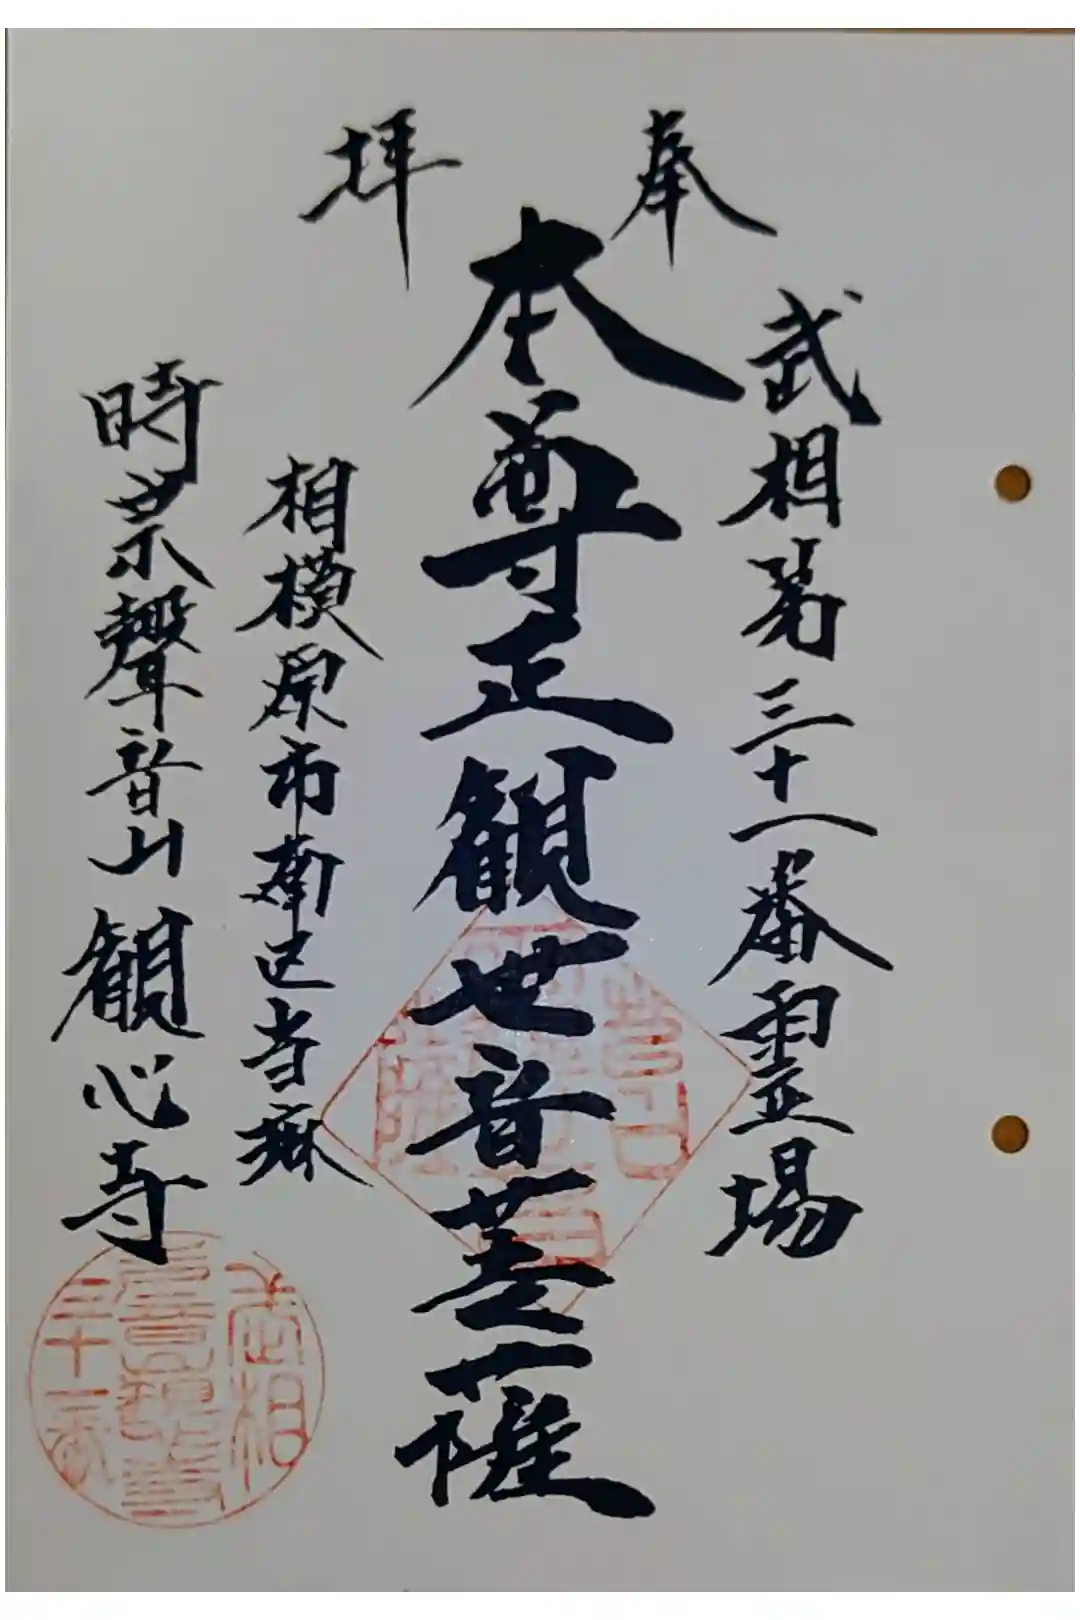 奉拝
武相第三十一番霊場
本尊正観世音菩薩
相模原市南区当麻
時宗聲音山観心寺
武相
三十一番